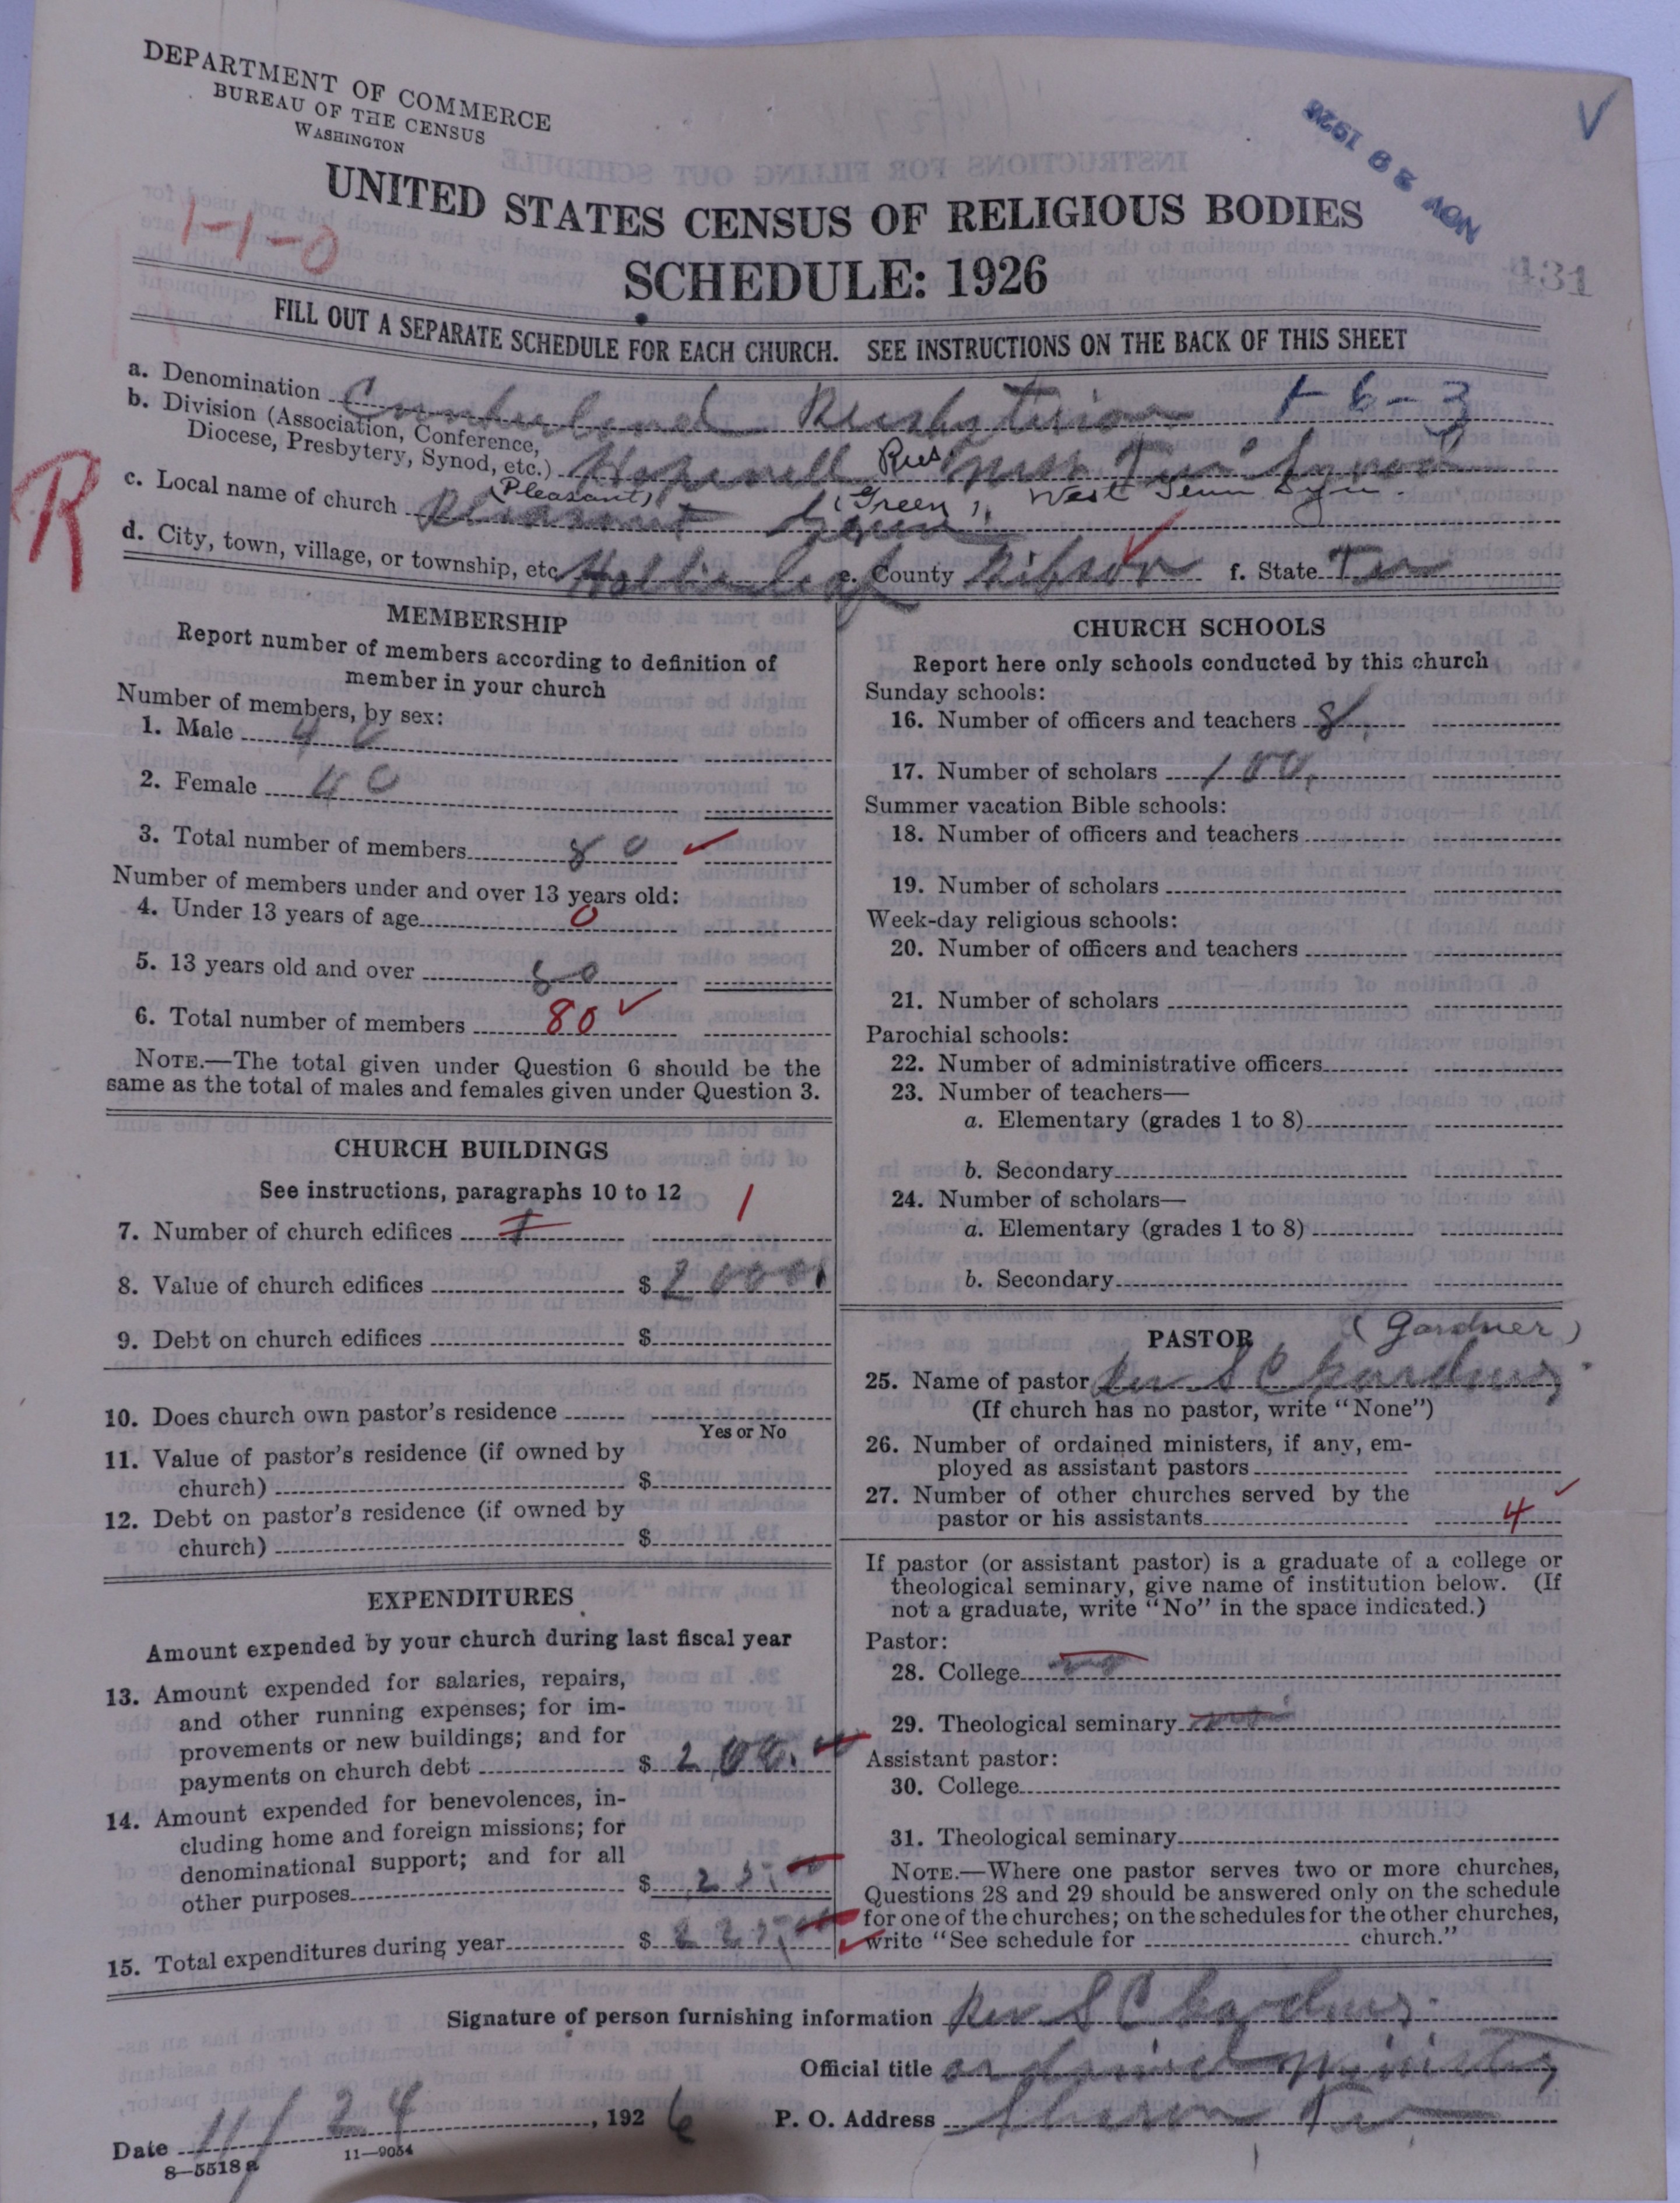 DEPARTMENT OF COMMERCE
BUREAU OF THE CENSUS
WASHINGTON
NOV 29 1926
UNITED STATES CENSUS OF RELIGIOUS BODIES
1-1-0
SCHEDULE: 1926
431
FILL OUT A SEPARATE SCHEDULE FOR EACH CHURCH. SEE INSTRUCTIONS ON THE BACK OF THIS SHEET
a. Denomination Cumberland Presbyterian 1-6-3
b. Division (Association, Conference, Diocese, Presbytery, Synod, etc.) Hopewell Pres West Tenn Synod
(Pleasant) (Green) West Tenn Syn.
c. Local name of church Pleasant Green
R
d. City, town, village, or township, etc. e. County Gibson f. State Ten
MEMBERSHIP
Report number of members according to definition of
member in your church
Number of members, by sex:
1. Male 40
2. Female 40
3. Total number of members 80
Number of members under and over 13 years old:
4. Under 13 years of age 0
5. 13 years old and over 80
6. Total number of members 80
NOTE.—The total given under Question 6 should be the
same as the total of males and females given under Question 3.
CHURCH BUILDINGS
See instructions, paragraphs 10 to 12
7. Number of church edifices 1 1
8. Value of church edifices $ 2000
9. Debt on church edifices $
10. Does church own pastor's residence
Yes or No
11. Value of pastor's residence (if owned by
church) $
12. Debt on pastor's residence (if owned by
church) $
EXPENDITURES
Amount expended by your church during last fiscal year
13. Amount expended for salaries, repairs,
and other running expenses; for im-
provements or new buildings; and for
payments on church debt $ 200.00
14. Amount expended for benevolences, in-
cluding home and foreign missions; for
denominational support; and for all
other purposes $ 25.00
15. Total expenditures during year $ 225.00
CHURCH SCHOOLS
Report here only schools conducted by this church
Sunday schools:
16. Number of officers and teachers 8
17. Number of scholars 100
Summer vacation Bible schools:
18. Number of officers and teachers
19. Number of scholars
Week-day religious schools:
20. Number of officers and teachers
21. Number of scholars
Parochial schools:
22. Number of administrative officers
23. Number of teachers—
a. Elementary (grades 1 to 8)
b. Secondary
24. Number of scholars—
a. Elementary (grades 1 to 8)
b. Secondary
PASTOR (Gardner)
25. Name of pastor Rev S C Gardner
(If church has no pastor, write "None")
26. Number of ordained ministers, if any, em-
ployed as assistant pastors
27. Number of other churches served by the
pastor or his assistants 4
If pastor (or assistant pastor) is a graduate of a college or
theological seminary, give name of institution below. (If
not a graduate, write "No" in the space indicated.)
Pastor:
28. College no
29. Theological seminary no
Assistant pastor:
30. College
31. Theological seminary
NOTE.—Where one pastor serves two or more churches,
Questions 28 and 29 should be answered only on the schedule
for one of the churches; on the schedules for the other churches,
write "See schedule for church."
Signature of person furnishing information Rev S C Gardner
Official title ordained minister
Date 11/24, 1926 P. O. Address Sharon Ten
8-5518 a 11-9054